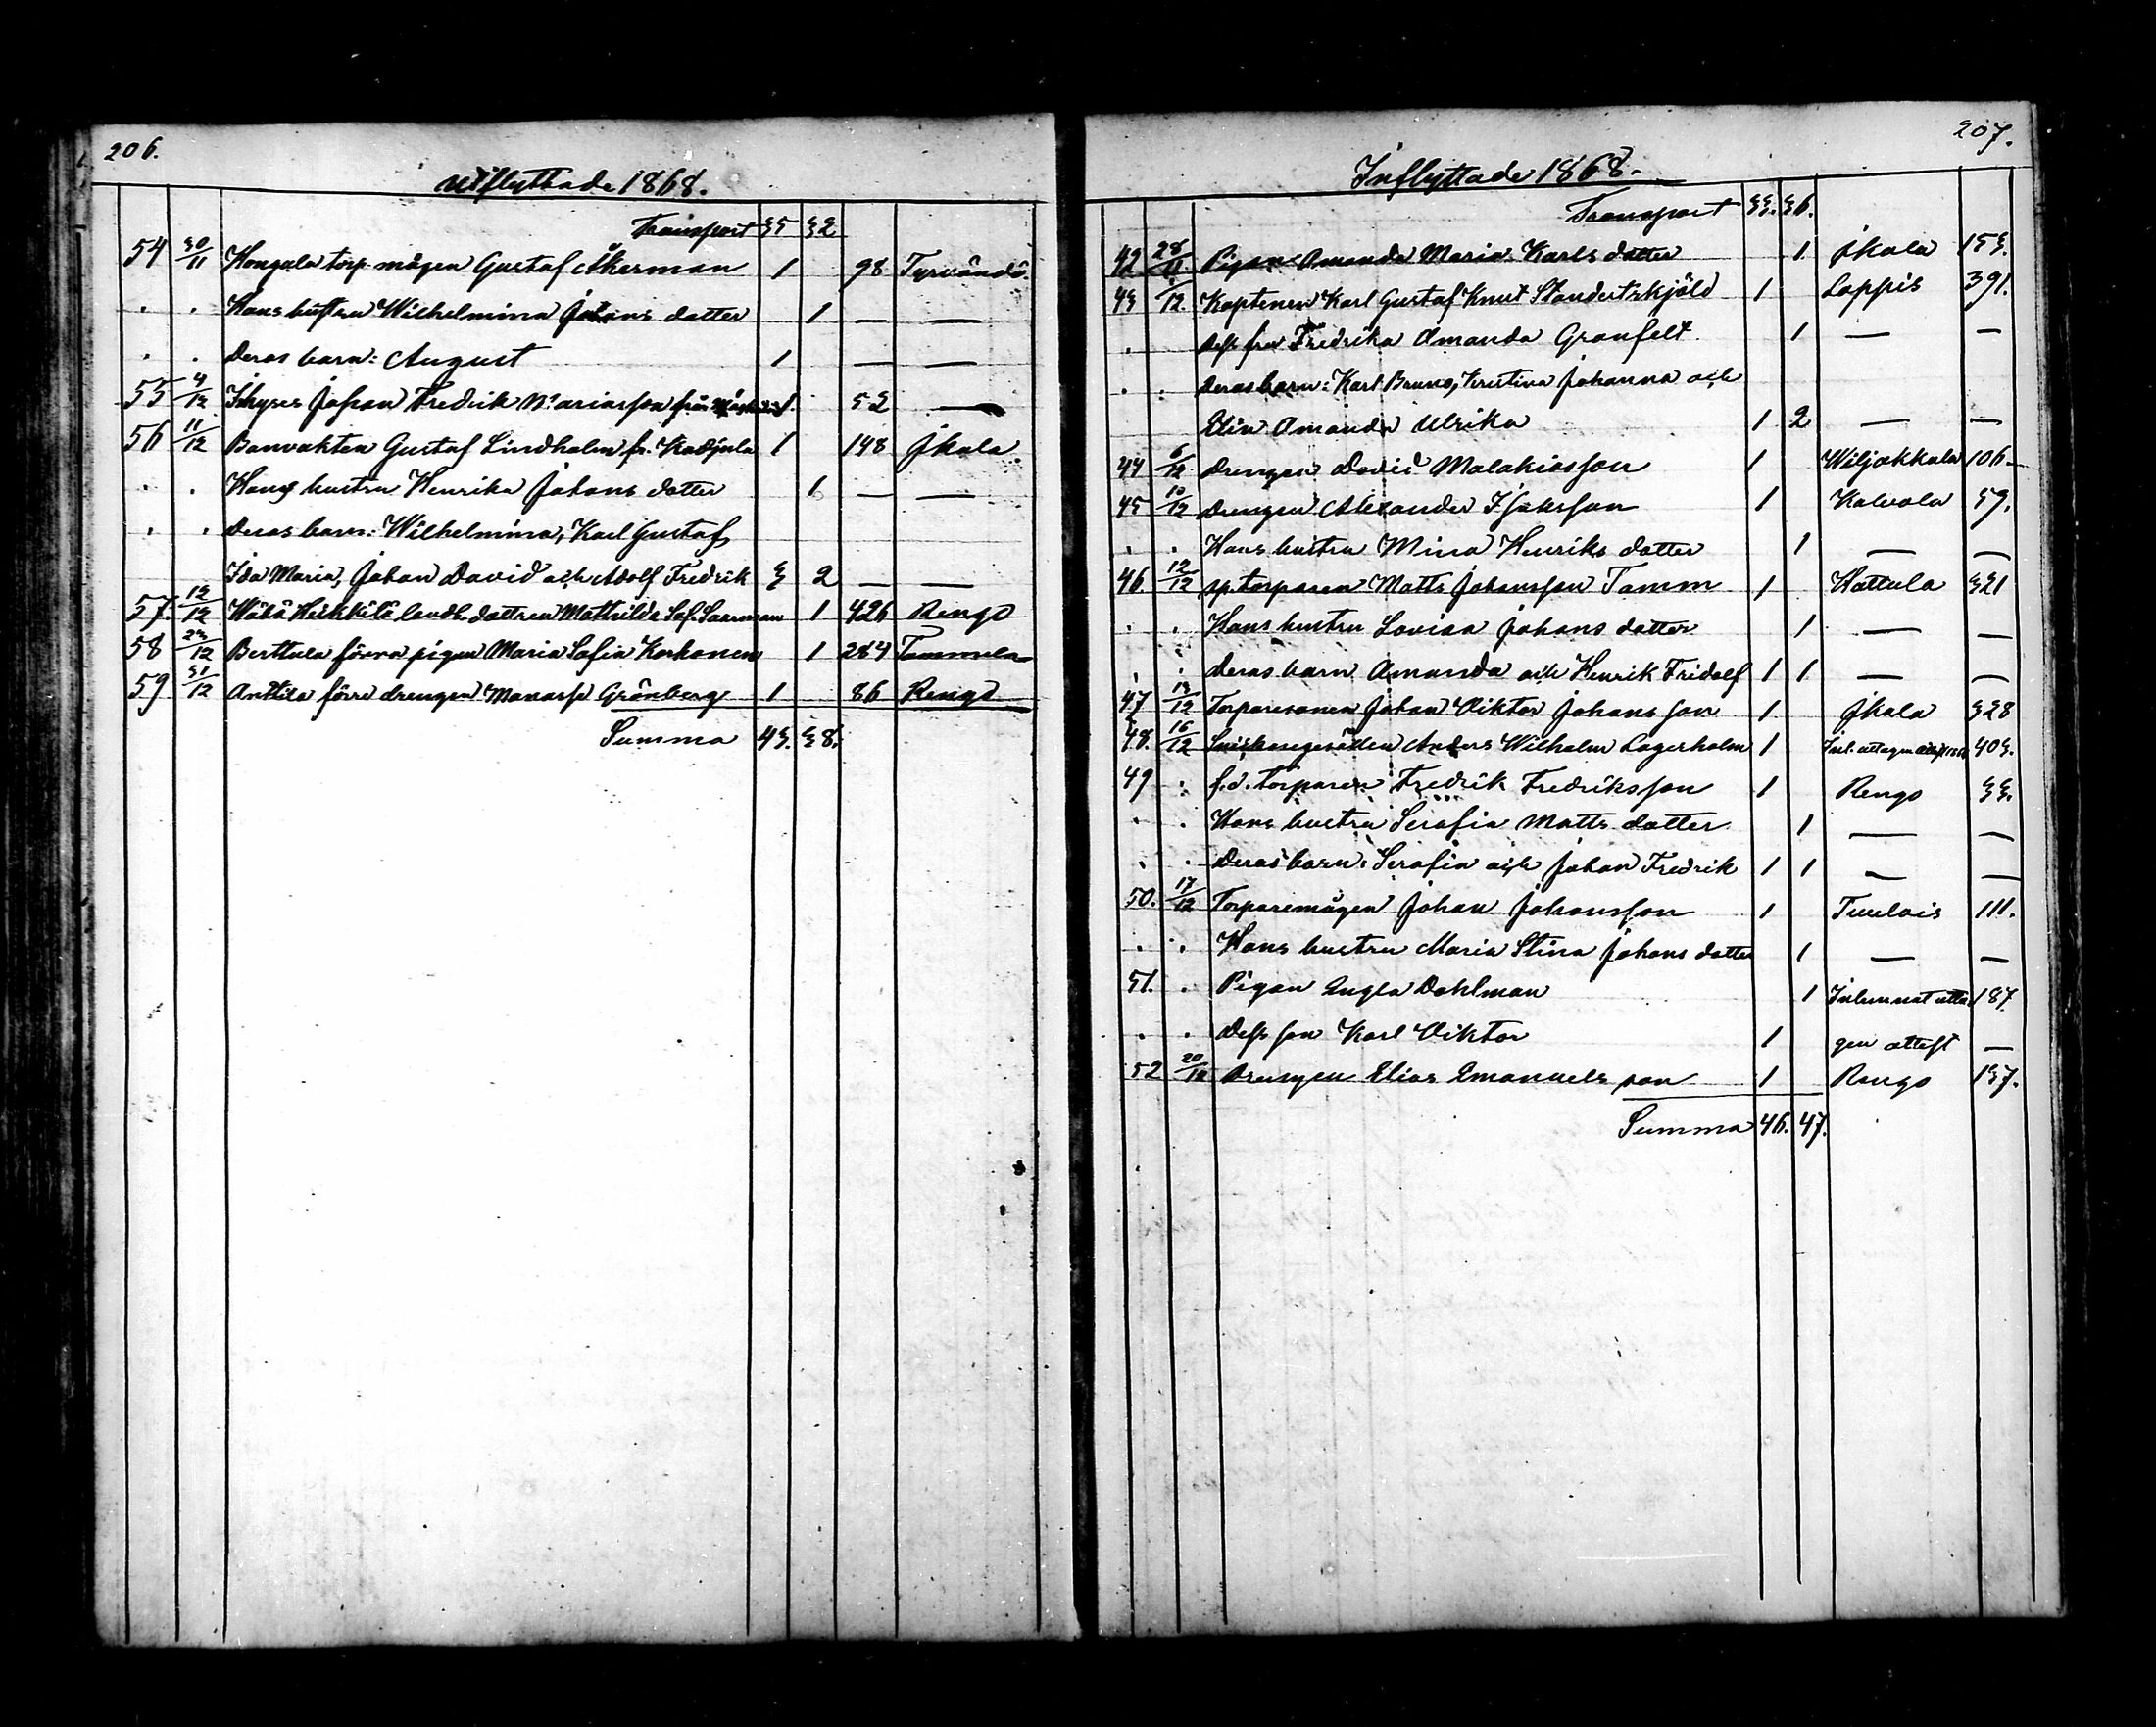 206.
Utflyttade 1868.
Transport 35 32
54 30/11 Hongala torp. mågen Gustaf Åkerman 1 98 Tyrvändö.
. . Hans hustru Wilhelmina Johans dotter 1 — —
. . Deras barn: August 1 — —
55 4/12 Johan Fredrik från 1. 52 —
56 11/12 Banvakten Gustaf Lindholm fr. Kadjula 1 148 Jkala
. . Hans hustru Henrika Johans dotter 1 — —
. . Deras barn: Wilhelmina, Karl Gustaf,
Ida Maria, Johan David och Adolf Fredrik 3 2 — —
57. 12/12 Wähä Heikkilä landb. dottren Mathilda Sof. Saarman 1 426 Rengo
58 23/12 Berttula förra pigan Maria Sofia Korhonen 1 284 Tammela
59 31/12 Anttila förre drengen Manasse Grönberg 1 86 Rengo
Summa 43. 38.
207.
Inflyttade 1868.
Transport 33. 36.
42 28/11. Pigan Amanda Maria Karls dotter 1 Jkala 153.
43 /12. Kaptenen Karl Gustaf Knut Standertskjöld 1 Loppis 391.
. Dess fru Fredrika Amanda Granfelt 1 — —
. . Deras barn: Karl Bruno, Kristina Johanna och
Elin Amanda Ulrika 1 2 — —
44 6/12 Drengen David Malakiasson 1 Wiljakkala 106
45 10/12 Drengen Alexander Isaksson 1 Kalvola 59.
. . Hans hustru Mina Henriks dotter 1 — —
46. 12/12 sp. torparen Matts Johansson Tamm 1 Hattula 321
. . Hans hustru Lovisa Johans dotter 1 — —
. . Deras barn Amanda och Henrik Fridolf 1 1 — —
47 13/12 Torparesonen Johan Viktor Johansson 1 Jkala 328
48. 16/12 Anders Wilhelm Lagerholm 1 403.
49 . f.d. torparen Fredrik Fredriksson 1 Rengo 33.
. . Hans hustru Serafia Matts dotter 1 — —
. . Deras barn: Serafia och Johan Fredrik 1 1 — —
50. 17/12 Torparemågen Johan Johansson 1 Tuulois 111.
. . Hans hustru Maria Stina Johans dotter 1 — —
51. . Pigan Engla Dahlman 1 Inlemnat utta 187
. . Dess son Karl Viktor 1 gen attest —
52 20/12 Drengen Elias Emanuels son 1 Rengo 137.
Summa 46. 47.